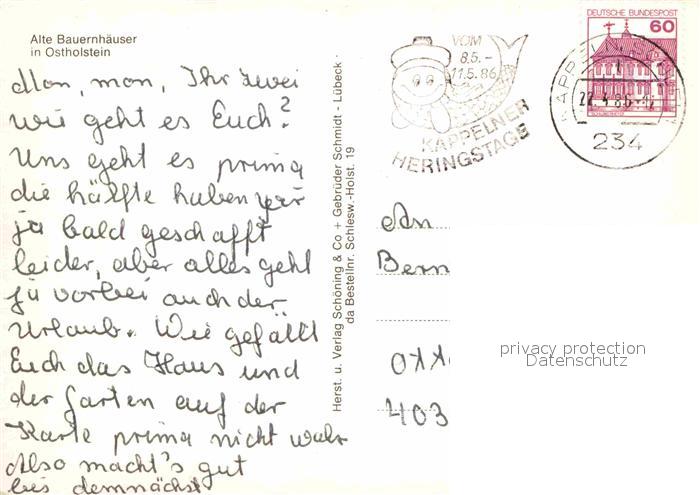 Alte Bauernhäuser
in Ostholstein
Mon, mon, Ihr zwei
wie geht es Euch?
Uns geht es prima
die hälfte haben wir
ja bald geschafft
leider, aber alles geht
ja vorbei auch der
Urlaub. Wie gefällt
Euch das Haus und
der Garten auf der
Karte prima nicht wahr
Also macht's gut
bis demnächst
Herst. u. Verlag Schöning & Co + Gebrüder Schmidt - Lübeck -
da Bestellnr. Schlesw.-Holst. 19
VOM
8.5.-
11.5.86
KAPPELNER
HERINGSTAGE
DEUTSCHE BUNDESPOST
60
KAPPELN
22.4.86
234
An
Bern
privacy protection
Datenschutz
403